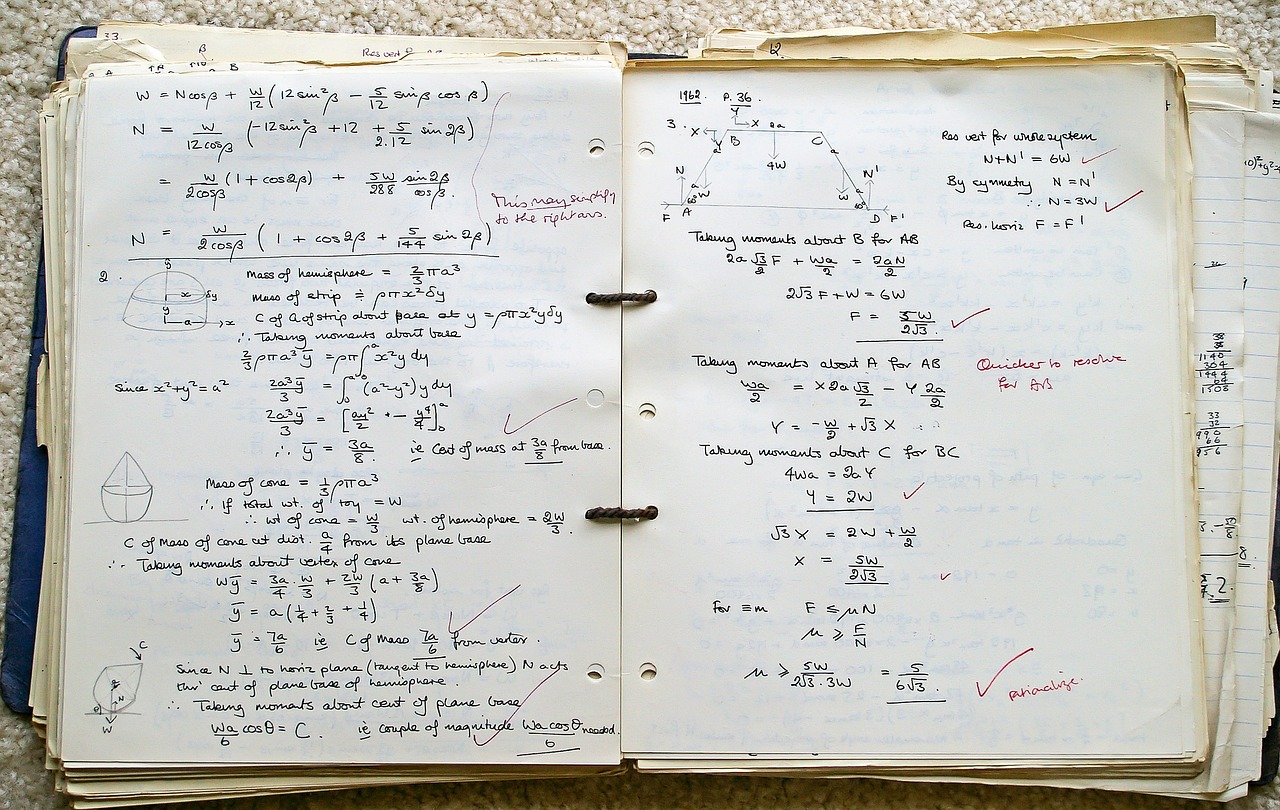 33.
β
Res vert
B
W = N cos β + W/12 (12 sin²β − 5/12 sin β cos β)
N = W/12cosβ (−12 sin²β + 12 + 5/2.12 sin 2β)
= W/2cosβ (1 + cos 2β) + 5W/288 sin 2β/cos β.
This may simplify
to the right ans.
N = W/2cosβ (1 + cos 2β + 5/144 sin 2β)
2.
y
x δy
y
a x
Mass of hemisphere = 2/3 πa³
Mass of strip ≑ ρπx²δy
C of G of strip about base at y = ρπx²yδy
∴ Taking moments about base
2/3 ρπa³ȳ = ρπ∫₀ᵃ x²y dy
Since x²+y² = a² 2a³ȳ/3 = ∫₀ᵃ (a²−y²) y dy
2a³ȳ/3 = [ay²/2 − y⁴/4]₀ᵃ
∴ ȳ = 3a/8 ie Cent of mass at 3a/8 from base.
Mass of cone = 1/3 ρπa³
∴ If total wt. of toy = W
∴ wt of cone = W/3 wt. of hemisphere = 2W/3.
C of Mass of cone at dist. a/4 from its plane base
∴ Taking moments about vertex of cone
Wȳ = 3a/4 · W/3 + 2W/3 (a + 3a/8)
ȳ = a(1/4 + 2/3 + 1/4)
ȳ = 7a/6 ie C of Mass 7a/6 from vertex.
C
N
θ
W
Since N ⊥ to horiz plane (tangent to hemisphere) N acts
thro' cent of plane base of hemisphere.
∴ Taking moments about cent of plane base
Wa/6 cosθ = C. ie couple of magnitude Wa cosθ/6 needed.
1962. P. 36.
3.
Y
X X 2a
Y B C
a a
4W
N N'
a W W a
60° 60°
F A D F'
Res vert for whole system
N+N' = 6W
By symmetry N = N'
∴ N = 3W
Res. horiz F = F'
Taking moments about B for AB
2a √3/2 F + Wa/2 = 2aN/2
2√3 F + W = 6W
F = 5W/2√3.
Taking moments about A for AB
Quicker to resolve
for AB
Wa/2 = X 2a √3/2 − Y 2a/2
Y = −W/2 + √3 X
Taking moments about C for BC
4Wa = 2aY
Y = 2W
√3 X = 2W + W/2
X = 5W/2√3
For ≡m F ≤ μN
μ ≥ F/N
μ ≥ 5W/2√3.3W = 5/6√3.
rationalize.
38
38
1140
304
1444
64
1508
33
32
990
66
956
8.
2.